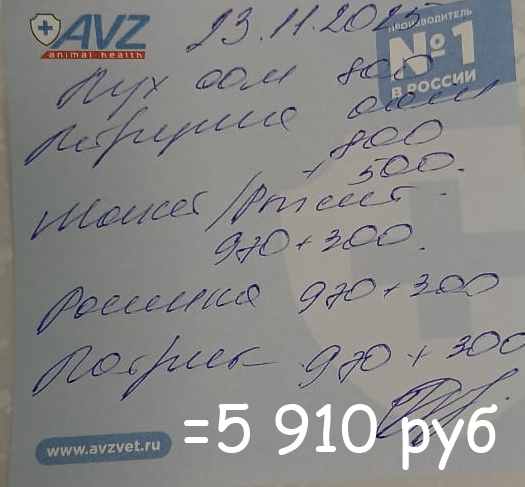 AVZ
animal health
23.11.2025
ПРОИЗВОДИТЕЛЬ
№1
В РОССИИ
Пух осм 800
Петруша осм
800
+ 500.
970+300.
Росинка 970+300
Патрик 970+300
www.avzvet.ru
=5 910 руб